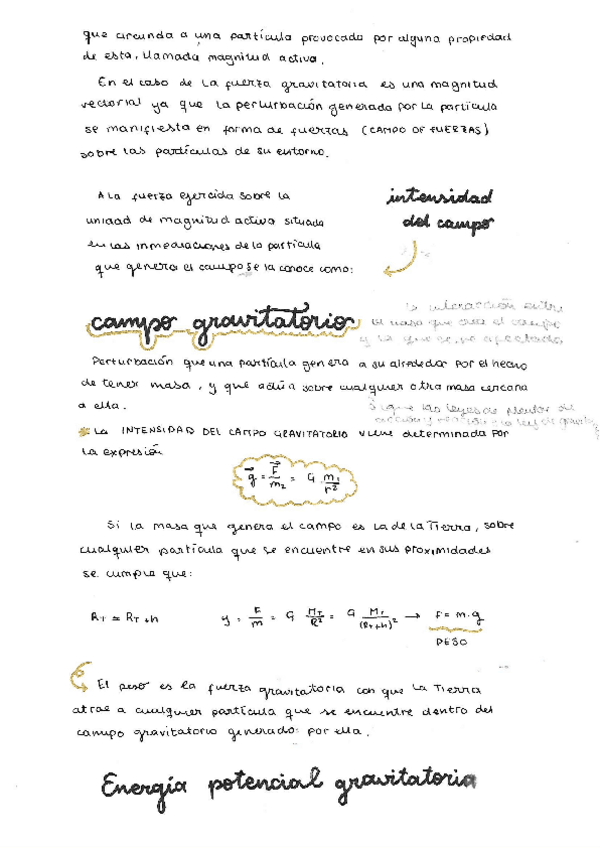 que circunda a una partícula provocado por alguna propiedad
de esta, llamada magnitud activa.
En el caso de la fuerza gravitatoria es una magnitud
vectorial ya que la perturbación generada por la partícula
se manifiesta en forma de fuerzas (CAMPO DE FUERZAS)
sobre las partículas de su entorno.
A la fuerza ejercida sobre la
unidad de magnitud activa situada
en las inmediaciones de la partícula
que genera el campo se la conoce como:
intensidad
del campo
campo gravitatorio
la interacción entre
la masa que crea el campo
y la que se ve afectada
Perturbación que una partícula genera a su alrededor por el hecho
de tener masa, y que actúa sobre cualquier otra masa cercana
a ella.
Sigue las leyes de
* La INTENSIDAD DEL CAMPO GRAVITATORIO viene determinada por
la expresión
g⃗ = F⃗/m₂ = G · m₁/r²
Si la masa que genera el campo es la de la Tierra, sobre
cualquier partícula que se encuentre en sus proximidades
se cumple que:
RT ≃ RT + h g = F/m = G MT/R² = G MT/(RT+h)² → F = m·g
PESO
El peso es la fuerza gravitatoria con que la Tierra
atrae a cualquier partícula que se encuentre dentro del
campo gravitatorio generado por ella.
Energía potencial gravitatoria